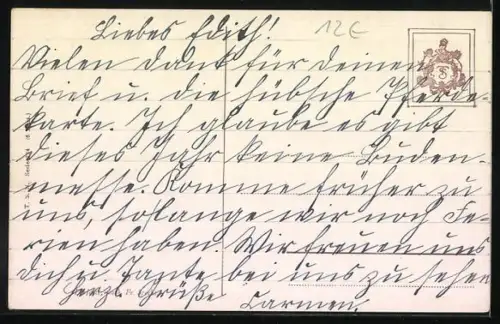 Liebes Edith! 12€
Vielen dank für deinen
Brief u. die hübsche Pferde-
karte. Ich glaube es gibt
dieses Jahr keine Buden-
messe. Komme früher zu
uns, solange wir noch Fe-
rien haben. Wir freuen uns
dich u. Tante bei uns zu sehen
Herzl. Grüße Carmen.